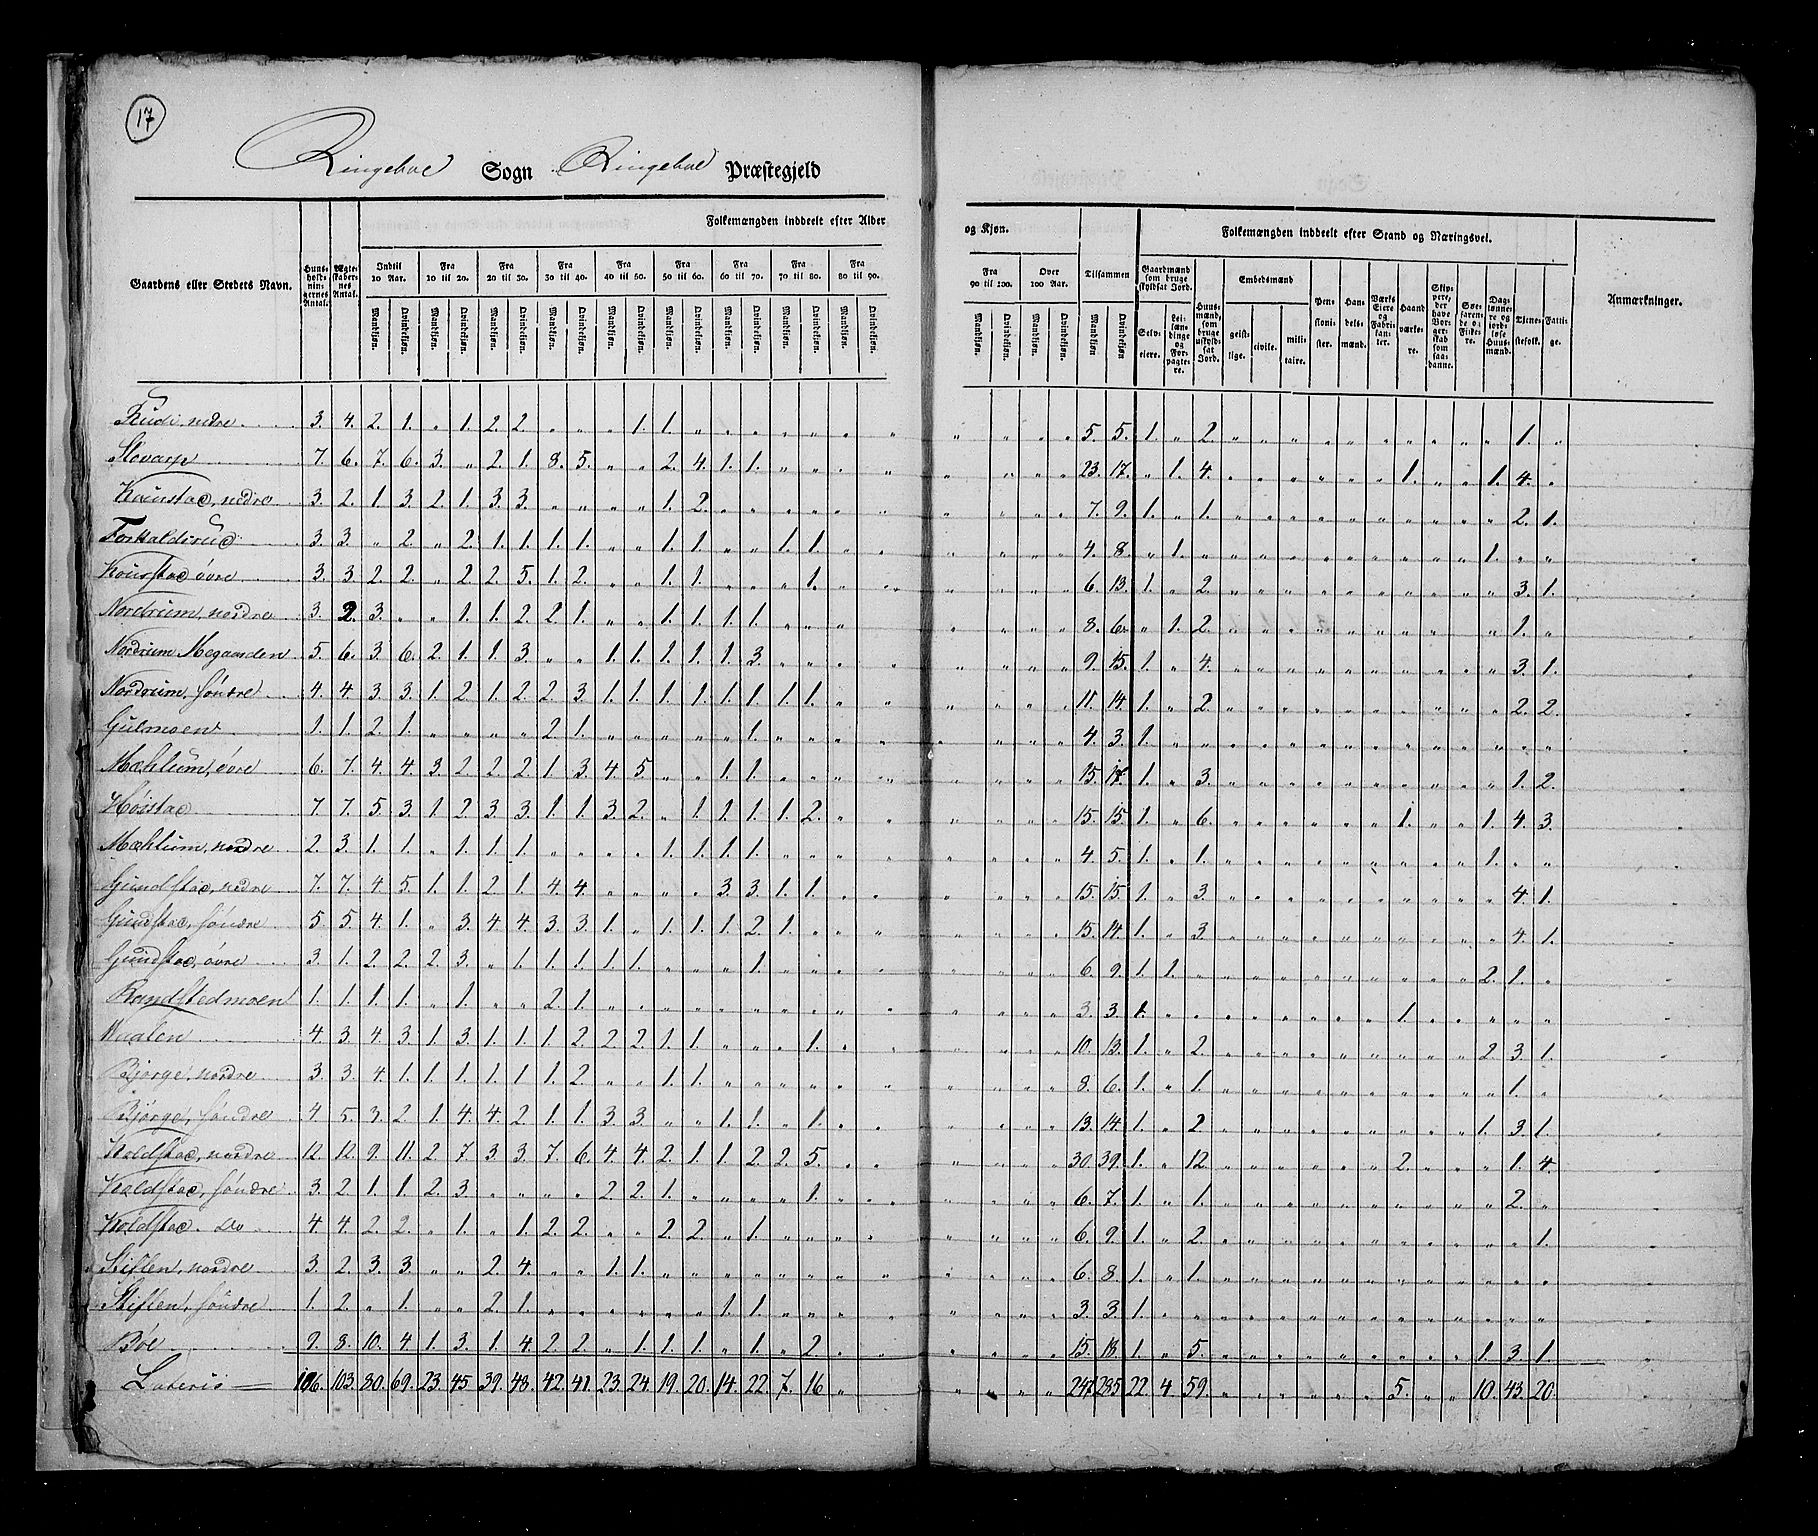 17
Ringeboe Sogn Ringeboe Præstegjeld
Folkemængden inddeelt efter Alder og Kjøn.
Folkemængden inddeelt efter Stand og Næringsvei.
Gaardens eller Stedets Navn. Huusholdningernes Antal. Ægteskabernes Antal. Indtil 10 Aar. Fra 10 til 20. Fra 20 til 30. Fra 30 til 40. Fra 40 til 50. Fra 50 til 60. Fra 60 til 70. Fra 70 til 80. Fra 80 til 90. Fra 90 til 100. Over 100 Aar. Tilsammen Gaardmænd som bruge skyldsat Jord. Embedsmænd Anmærkninger.
Mandkjøn. Qvindekjøn. Selveiere. Leilændinge og Forpagtere. Huusmænd, som bruge uskyldsat Jord. geistlige. civile. militaire. Pensionister. Handelsmænd. Værks Eiere og Fabrikanter. Haandværkere. Skippere, der have Borgerskab som saadanne. Søefarende og Fiskere. Dagslønnere og jordløse Huusmænd. Tjenestefolk. Fattige.
Rudi, nedre 3. 4. 2. 1. „ 1. 2. 2. „ „ „ 1. 1. „ „ „ „ „ „ „ „ „ „ „ 5. 5. 1. „ 2. „ „ „ „ „ „ „ „ „ „ 1. „
Slovarp 7. 6. 7. 6. 3. „ 2. 1. 8. 5. „ „ 2. 4. 1. 1. „ „ „ „ „ „ „ „ 23. 17. „ 1. 4. „ „ „ „ „ „ 1. „ „ 1. 4. „
Kounstad, nedre 3. 2. 1. 3. 2. 1. 3. 3. „ „ „ „ 1. 2. „ „ „ „ „ „ „ „ „ „ 7. 9. 1. „ 1. „ „ „ „ „ „ „ „ „ „ 2. 1.
3. 3. „ 2. „ 2. 1. 1. 1. 1. „ „ 1. 1. „ „ 1. 1. „ „ „ „ „ „ 4. 8. „ 1. „ „ „ „ „ „ „ „ „ „ 1. „ „
Kounstad øvre 3. 3. 2. 2. „ 2. 2. 5. 1. 2. „ „ 1. 1. „ „ „ 1. „ „ „ „ „ „ 6. 13. 1. „ 2. „ „ „ „ „ „ „ „ „ „ 3. 1.
Nordrum, nordre 3. 2. 3. „ „ 1. 1. 2. 2. 1. „ „ 1. 1. 1. 1. „ „ „ „ „ „ „ „ 8. 6. „ 1. 2. „ „ „ „ „ „ „ „ „ 1. „
Nordrum Megaarden 5. 6. 3. 6. 2. 1. 1. 3. „ „ 1. 1. 1. 1. 1. 3. „ „ „ „ „ „ „ „ 9. 15. 1. „ 4. „ „ „ „ „ „ „ „ „ „ 3. 1.
Nordrum, søndre 4. 4. 3. 3. 1. 2. 1. 2. 2. 3. 1. 1. 1. 1. 1. 1. 1. 1. „ „ „ „ „ „ 11. 14. 1. „ 2. „ „ „ „ „ „ „ „ „ „ 2. 2.
Gulmoen 1. 1. 2. 1. „ „ „ „ 2. 1. „ „ „ „ „ 1. „ „ „ „ „ „ „ „ 4. 3. 1. „ „ „ „ „ „ „ „ „ „ „ „ „ „
Mæhlum, øvre 6. 7. 4. 4. 3. 2. 2. 2. 1. 3. 4. 5. „ „ 1. 1. „ „ „ „ „ „ „ „ 15. 17. 1. „ 3. „ „ „ „ „ „ „ „ „ „ 1. 2.
Høistad 7. 7. 5. 3. 1. 2. 3. 3. 1. 1. 3. 2. „ 1. 1. 1. 1. 2. „ „ „ „ „ „ 15. 15. 1. „ 6. „ „ „ „ „ „ 1. „ „ 1. 4. 3.
Mæhlum, nordre 2. 3. 1. 1. „ 1. 1. 1. „ „ „ „ 1. 1. 1. 1. „ „ „ „ „ „ „ „ 4. 5. 1. „ 1. „ „ „ „ „ „ „ „ „ 1. „ „
Gundstad, nedre 7. 7. 4. 5. 1. 1. 2. 1. 4. 4. „ „ „ „ 3. 3. 1. 1. „ „ „ „ „ „ 15. 15. 1. „ 3. „ „ „ „ „ „ „ „ „ „ 4. 1.
Gundstad, søndre 5. 5. 4. 1. „ 3. 4. 4. 3. 3. 1. „ 1. 1. 1. 2. 1. „ „ „ „ „ „ „ 15. 14. 1. „ 3. „ „ „ „ „ „ „ „ „ „ 4. 1.
Gundstad, øvre 3. 1. 2. 2. 2. 3. „ 1. 1. 1. 1. 1. „ „ „ 1. „ „ „ „ „ „ „ „ 6. 9. 1. 1. „ „ „ „ „ „ „ „ „ „ 2. 1. „
Randstedmoen 1. 1. 1. 1. „ 1. „ „ 2. 1. „ „ „ „ „ „ „ „ „ „ „ „ „ „ 3. 3. 1. „ „ „ „ „ „ „ „ 1. „ „ „ „ „
Waalen 4. 3. 4. 3. 1. 3. 1. 1. 1. 2. 2. 2. 1. 1. „ „ „ 1. „ „ „ „ „ „ 10. 13. 1. „ 2. „ „ „ „ „ „ „ „ „ 2. 3. 1.
Bjørge, nordre 3. 3. 4. 1. 1. 1. 1. 1. 1. 2. „ „ 1. 1. „ „ „ „ „ „ „ „ „ „ 8. 6. 1. „ 1. „ „ „ „ „ „ „ „ „ „ 1. „
Bjørge, søndre 4. 5. 3. 2. 1. 4. 4. 2. 1. 1. 3. 3. „ „ 1. 1. „ 1. „ „ „ „ „ „ 13. 14. 1. „ 2. „ „ „ „ „ „ „ „ „ 1. 3. 1.
Koldstad, nordre 12. 12. 9. 11. 2. 7. 3. 3. 7. 6. 4. 4. 2. 1. 1. 2. 2. 5. „ „ „ „ „ „ 30. 39. 1. „ 12. „ „ „ „ „ „ 2. „ „ „ 1. 4.
Koldstad, søndre 3. 2. 1. 1. 2. 3. „ „ „ „ 2. 2. 1. „ „ „ „ 1. „ „ „ „ „ „ 6. 7. 1. „ 1. „ „ „ „ „ „ „ „ „ „ 2. „
Koldstad Do 4. 4. 2. 2. „ 1. „ 1. 2. 2. „ „ 2. 2. „ 1. „ „ „ „ „ „ „ „ 6. 9. 1. „ 2. „ „ „ „ „ „ „ „ „ „ „ 1.
Stiflen, nordre 3. 2. 3. 3. „ „ 2. 4. „ „ 1. 1. „ „ „ „ „ „ „ „ „ „ „ „ 6. 8. 1. „ 1. „ „ „ „ „ „ „ „ „ „ „ „
Stiflen, søndre 1. 2. „ 1. „ „ 2. 1. „ „ „ „ „ „ 1. 1. „ „ „ „ „ „ „ „ 3. 3. 1. „ „ „ „ „ „ „ „ „ „ „ „ „ „
Bøe 9. 8. 10. 4. 1. 3. 1. 4. 2. 2. „ 1. 1. 1. „ 1. „ 2. „ „ „ „ „ „ 15. 18. 1. „ 5. „ „ „ „ „ „ „ „ „ 1. 3. 1.
Lateris 106. 103. 80. 69. 23. 45. 39. 48. 42. 41. 23. 24. 19. 20. 14. 22. 7. 16. „ „ „ „ „ 247 285 22. 4. 59. „ „ „ „ „ „ 5. „ „ 10. 43. 20.